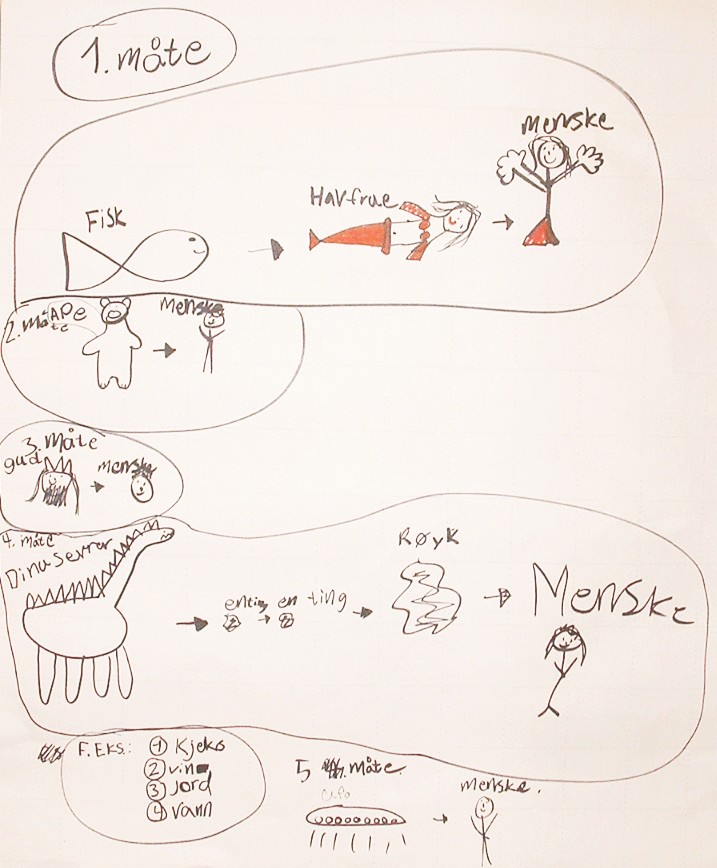 1. måte
Fisk
Havfrue
menske
2. måte
APe
Menske
3. måte
gud
menske
4. måte
Dinusevrer
enting en ting
RØYK
Menske
F. EKS.: ① Kjeks
② vin
③ jord
④ vann
5 måte.
Ufo
menske.